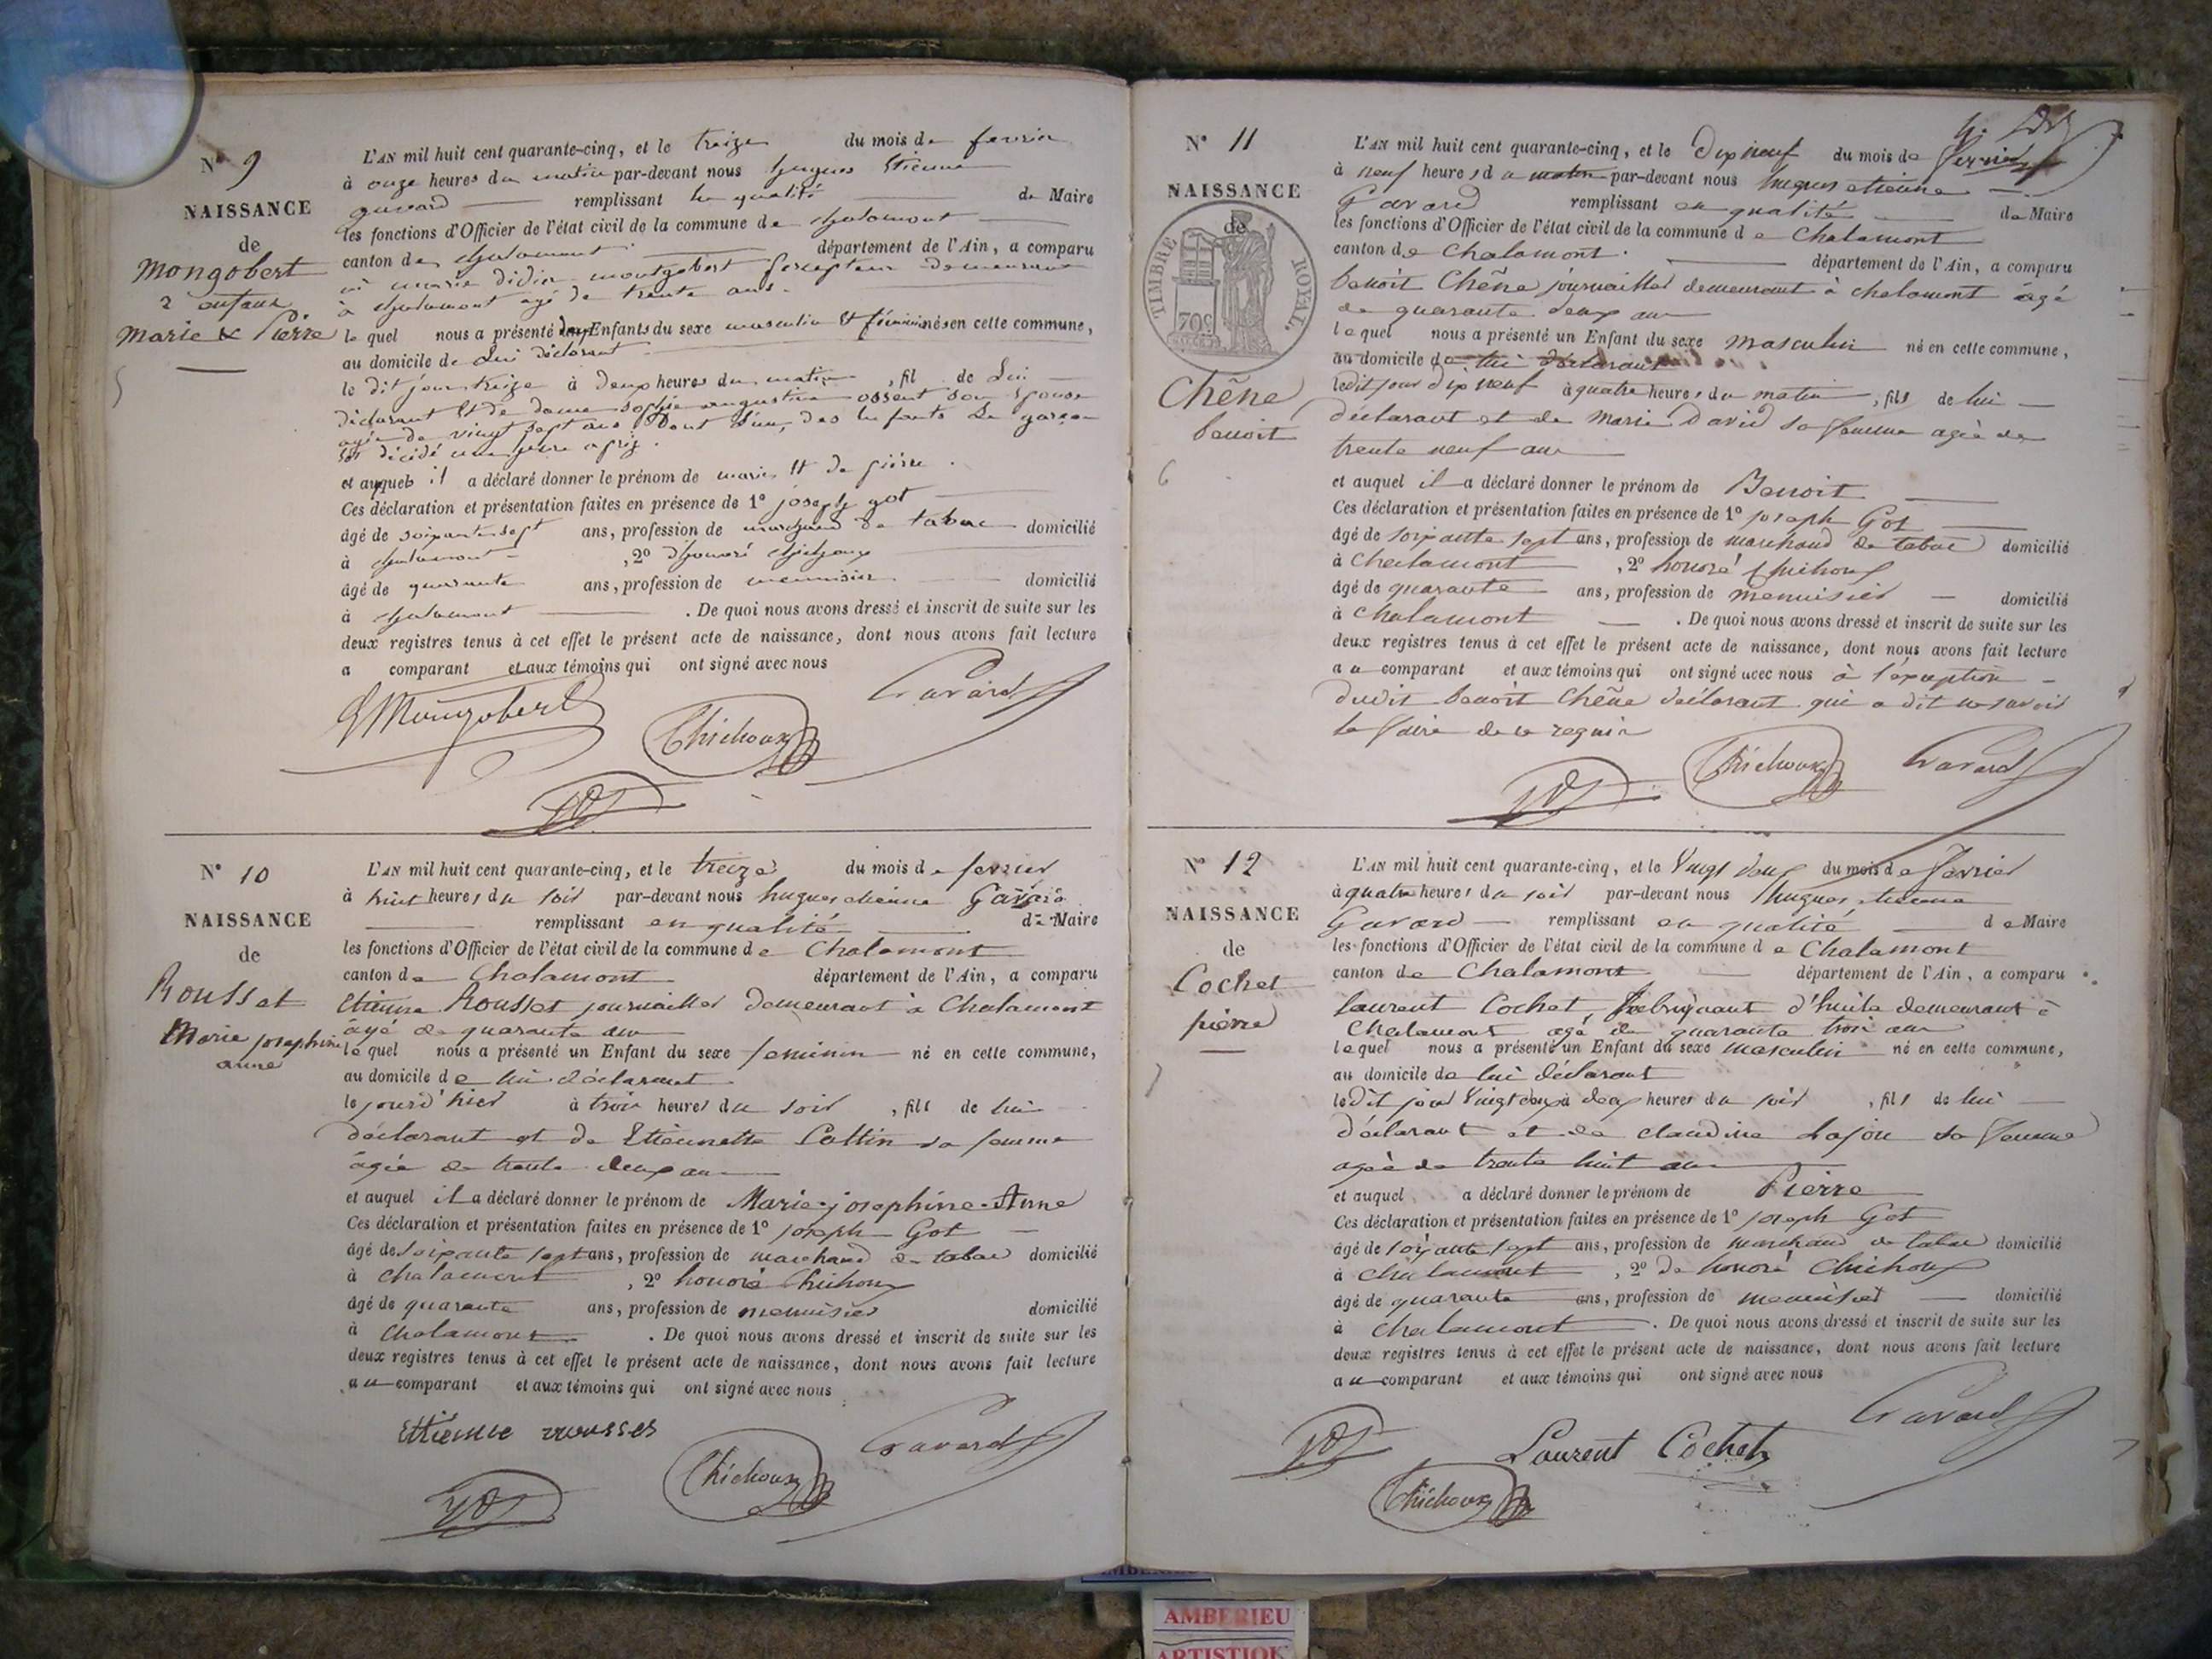 N° 9
NAISSANCE
de
Mongobert
2 enfants
Marie & Pierre
L'AN mil huit cent quarante-cinq, et le treize du mois de fevrier
à onze heures du matin par-devant nous hugues Etienne
gavard remplissant en qualité de Maire
les fonctions d'Officier de l'état civil de la commune de chalamont
canton de chalamont département de l'Ain, a comparu
montgobert percepteur demeurant
à chalamont agé de trente ans.
le quel nous a présenté deux Enfants du sexe masculin et féminin nés en cette commune,
au domicile de Lui déclarant
le dit jour treize à deux heures du matin, fil de Lui
déclarant et de dame sophie augustine ossent son épouse
agée de vingt sept ans Dont L'un des enfants Le garçon
est décédé une heure après.
et auquels il a déclaré donner le prénom de marie et de pierre.
Ces déclaration et présentation faites en présence de 1° joseph got
âgé de soixante sept ans, profession de marchand de tabac domicilié
à chalamont, 2° d'honoré chichoux
âgé de quarante ans, profession de menuisier domicilié
à chalamont. De quoi nous avons dressé et inscrit de suite sur les
deux registres tenus à cet effet le présent acte de naissance, dont nous avons fait lecture
a comparant et aux témoins qui ont signé avec nous
Mongobert Chichoux Gavard
N° 10
NAISSANCE
de
Rousset
Marie josephine
anne
L'AN mil huit cent quarante-cinq, et le treize du mois de fevrier
à huit heures du soir par-devant nous hugues etienne Gavard
remplissant en qualité de Maire
les fonctions d'Officier de l'état civil de la commune de Chalamont
canton de Chalamont département de l'Ain, a comparu
Etienne Rousset journaillier demeurant à Chalamont
âgé de quarante ans
le quel nous a présenté un Enfant du sexe feminin né en cette commune,
au domicile de lui déclarant
le jourd'hier à trois heures du soir, fils de lui
déclarant et de Etiennette Cottin sa femme
âgée de trente deux ans
et auquel il a déclaré donner le prénom de Marie-josephine-Anne
Ces déclaration et présentation faites en présence de 1° joseph Got
âgé de soixante sept ans, profession de marchand de tabac domicilié
à chalamont, 2° honoré Chichoux
âgé de quarante ans, profession de menuisier domicilié
à Chalamont. De quoi nous avons dressé et inscrit de suite sur les
deux registres tenus à cet effet le présent acte de naissance, dont nous avons fait lecture
au comparant et aux témoins qui ont signé avec nous
Ettienne rousses
Chichoux Gavard
N° 11
NAISSANCE
de
TIMBRE ROYAL.
70c
Chêne
benoit
6
L'AN mil huit cent quarante-cinq, et le Dix neuf du mois de fevrier
à neuf heures du matin par-devant nous hugues etienne
Gavard remplissant en qualité de Maire
les fonctions d'Officier de l'état civil de la commune de Chalamont
canton de Chalamont. département de l'Ain, a comparu
benoit Chêne journaillier demeurant à chalamont âgé
de quarante deux ans
le quel nous a présenté un Enfant du sexe masculin né en cette commune,
au domicile de lui déclarant
ledit jour dix neuf à quatre heures du matin, fils de lui
déclarant et de Marie David sa femme agée de
trente neuf ans
et auquel il a déclaré donner le prénom de Benoit
Ces déclaration et présentation faites en présence de 1° joseph Got
âgé de soixante sept ans, profession de marchand de tabac domicilié
à Chalamont, 2° honoré Chichoux
âgé de quarante ans, profession de menuisier domicilié
à Chalamont. De quoi nous avons dressé et inscrit de suite sur les
deux registres tenus à cet effet le présent acte de naissance, dont nous avons fait lecture
au comparant et aux témoins qui ont signé avec nous à l'exception
dudit benoit Chêne déclarant qui a dit ne savoir
le faire de ce requis
Chichoux Gavard
N° 12
NAISSANCE
de
Cochet
pierre
7
L'AN mil huit cent quarante-cinq, et le Vingt deux du mois de fevrier
à quatre heures du soir par-devant nous hugues etienne
Gavard remplissant en qualité de Maire
les fonctions d'Officier de l'état civil de la commune de Chalamont
canton de Chalamont département de l'Ain, a comparu
laurent Cochet, fabriquant d'huile demeurant à
Chalamont agé de quarante trois ans
le quel nous a présenté un Enfant du sexe masculin né en cette commune,
au domicile de lui déclarant
ledit jour Vingt deux à deux heures du soir, fils de lui
déclarant et de claudine Lajon sa femme
agée de trente huit ans
et auquel a déclaré donner le prénom de Pierre
Ces déclaration et présentation faites en présence de 1° joseph Got
âgé de soixante sept ans, profession de marchand de tabac domicilié
à chalamont, 2° de honoré Chichoux
âgé de quarante ans, profession de menuisier domicilié
à Chalamont. De quoi nous avons dressé et inscrit de suite sur les
deux registres tenus à cet effet le présent acte de naissance, dont nous avons fait lecture
au comparant et aux témoins qui ont signé avec nous
Gavard
Laurent Cochet
Chichoux
AMBERIEU
ARTISTIQ